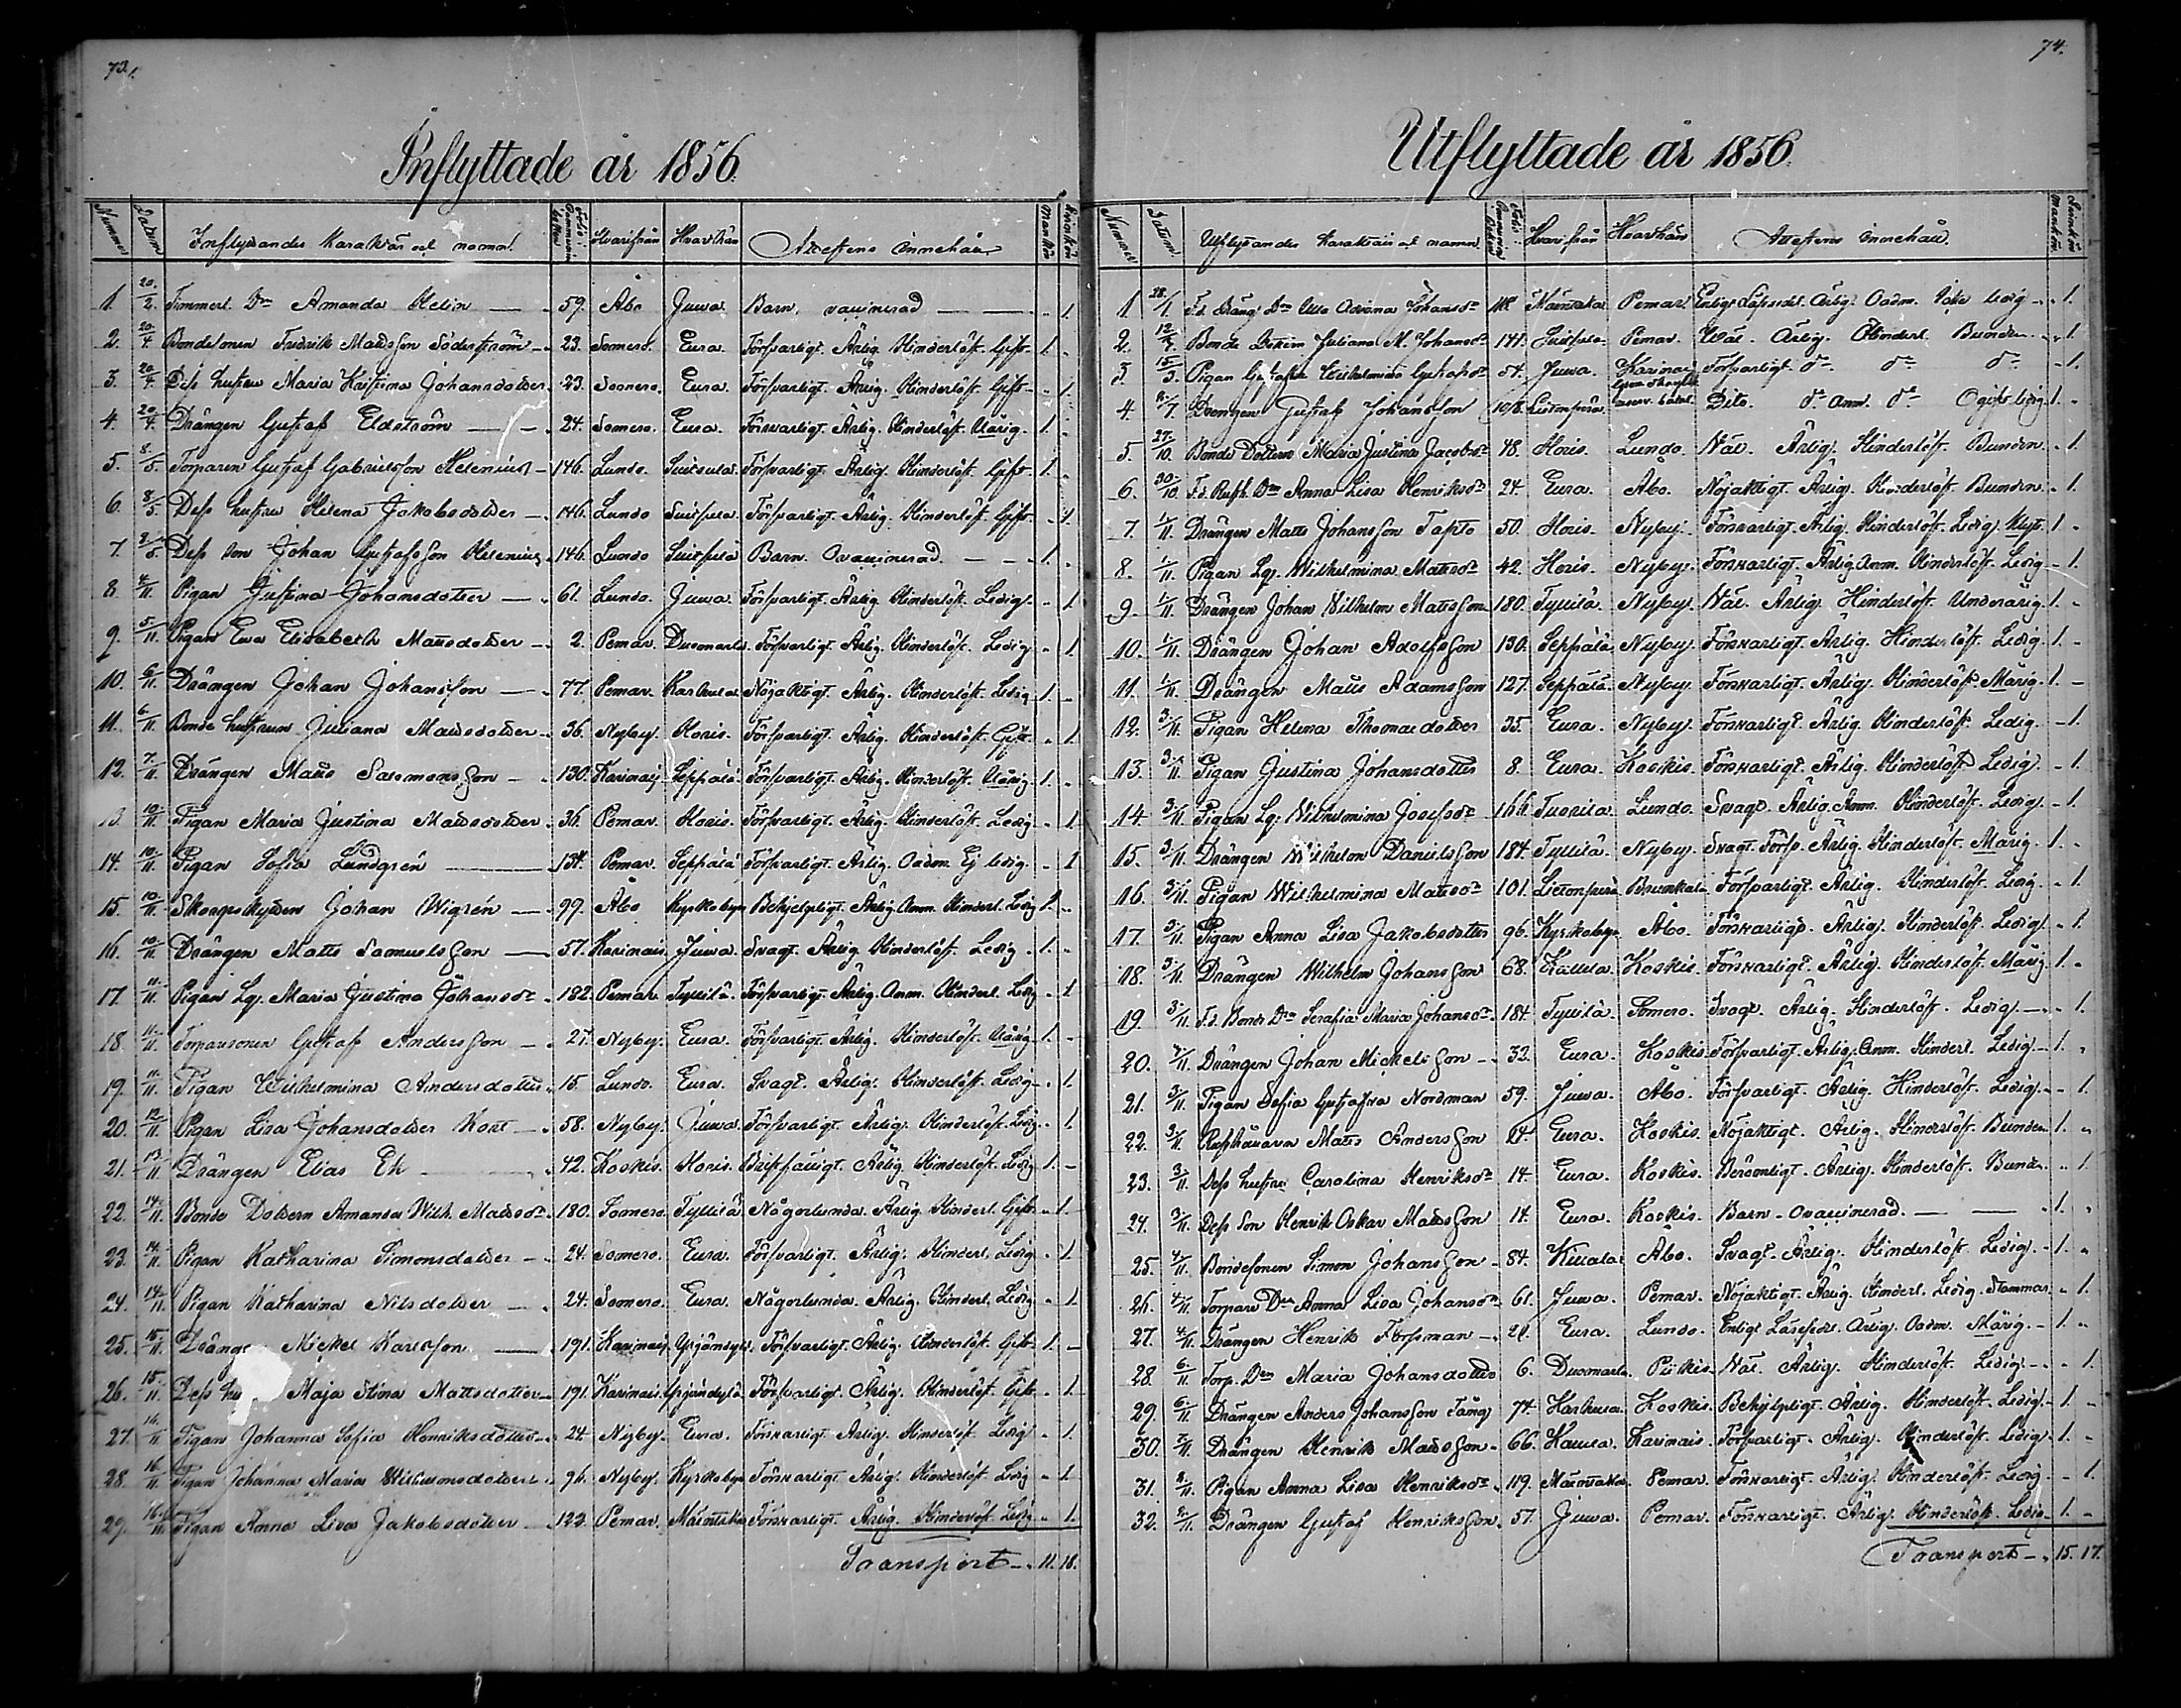 73.
Inflyttade år 1856.
Nummer Datum Inflyttandes Karaktär och namn. Folio i Communion boken Hvarifrån Hvarthän Attestens innehåll Mankön Qvinkön
1. 20/2. Timmerl. Dr Amanda Helin — 59. Åbo Juva. Barn, ovaccinerad — 1.
2. 20/4 Bondesonen Fredrik Mattsson Söderström 23. Somero. Eura. Försvarligt. Ärlig. Hinderlöst. Gift. 1.
3. 20/4. Dess hustru Maria Kristina Johansdotter 23. Somero. Eura. Försvarligt. Ärlig. Hinderlöst. Gift 1.
4. 20/4. Drängen Gustaf Eldström — 24. Somero. Eura. Försvarligt. Ärlig. Hinderlöst. Uårig. 1.
5. 8/5. Torparen Gustaf Gabrielsson Helenius 146. Lundo. Suitsula. Försvarligt. Ärlig. Hinderlöst. Gift 1.
6. 8/5 Dess hustru Helena Jakobsdotter 146. Lundo Suitsula. Försvarligt. Ärlig. Hinderlöst. Gift 1.
7. 8/5 Dess son Johan Gustafsson Helenius 146. Lundo Suitsula Barn. Ovaccinerad. — 1.
8. 4/11. Pigan Justina Johansdotter — 61. Lundo. Juva. Försvarligt. Ärlig. Hinderlöst. Ledig. 1
9. 5/11. Pigan Eva Elisabeth Mattsdotter 2. Pemar. Dusmarla. Försvarligt. Ärlig. Hinderlöst. Ledig 1
10. 6/11. Drängen Johan Johansson — 77. Pemar. Karhula. Nöjaktigt. Ärlig. Hinderlöst. Ledig 1.
11. 6/11 Bonde hustrun Juliana Mattsdotter 36. Nyby. Horis. Försvarligt. Ärlig. Hinderlöst. Gift. 1
12. 7/11. Drängen Matts Salomonsson — 130. Karinais Seppälä. Försvarligt. Ärlig. Hinderlöst. Uårig 1.
13. 10/11. Pigan Maria Justina Mattsdotter 36. Pemar. Horis. Försvarligt. Ärlig. Hinderlöst. Ledig 1
14. 10/11. Pigan Sofia Lundgrén — 134. Pemar. Seppälä Försvarligt. Ärlig. Oadm. Ej ledig. 1
15. 10/11. Skogvaktaren Johan Wigrén — 99. Åbo Kyrkobyn Behjelpligt. Ärlig. Anm. Hinderl. Ledig 1.
16. 10/11. Drängen Matts Samuelsson — 57. Karinais. Juva. Svagt. Ärlig Hinderlöst. Ledig 1.
17. 11/11. Pigan Lg. Maria Justina Johansdr 182. Pemar Tyllilä. Försvarligt. Ärlig. Anm. Hinderl. Ledig 1
18. 11/11. Torparsonen Gustaf Andersson 27. Nyby. Eura. Försvarligt. Ärlig. Hinderlöst. Uårig 1.
19. 11/11. Pigan Wilhelmina Andersdotter 15. Lundo. Eura. Svagt. Ärlig. Hinderlöst. Ledig. 1.
20. 12/11. Pigan Lisa Johansdotter Kort 58. Nyby. Juva. Försvarligt. Ärlig. Hinderlöst. Ledig. 1
21. 13/11. Drängen Elias Ek 42. Koskis. Horis. Bristfälligt. Ärlig. Hinderlöst. Ledig 1.
22. 14/11. Bonde Dottern Amanda Wilh. Mattsdr 180. Somero. Tyllilä Någorlunda. Ärlig. Hinderl. Gift 1.
23. 14/11. Pigan Katharina Simonsdotter 24. Somero. Eura. Försvarligt. Ärlig. Hinderl. Ledig 1
24. 14/11. Pigan Katharina Nilsdotter 24. Somero. Eura. Någorlunda. Ärlig. Hinderl. Ledig 1.
25. 15/11. Dränge Mickel Karlsson — 191. Karinais Försvarligt. Ärlig. Hinderlöst. Gift 1.
26. 15/11. Dess hu Maja Stina Mattsdotter 191. Karinais. Försvarligt. Ärlig. Hinderlöst. Gift 1.
27. 16/11 Pigan Johanna Sofia Henriksdotter 24. Nyby. Eura. Försvarligt Ärlig. Hinderlöst. Ledig 1.
28. 16/11 Pigan Johanna Maria Wilhelmsdotter 96. Nyby. Kyrkobyn Försvarligt. Ärlig. Hinderlöst. Ledig 1
29. 16/11 Pigan Anna Lisa Jakobsdotter 122. Pemar. Försvarligt. Ärlig. Hinderlöst. Ledig 1.
Transport 11. 18.
74.
Utflyttade år 1856.
Nummer Datum. Utflyttandes Karaktär och namn. Folio i Communion Boken Hvarifrån Hvarthän Attestens innehåll. Mankön Qvinkön
1 28/1. F.d. Dräng Dr Ulla Adriana Johansdr 118 Pemar. Enligt Läsesedel. Ärlig. Oadm. ledig 1.
2. 12/3. Bonde Dottern Juliana M. Johansdr 141. Suitsula. Pemar. Väl. Ärlig. Hinderl. Bunden. 1.
3. 15/3. Pigan Gustafva Wilhelmina Gustafsdr 54. Juva. Karinais Försvarligt. do do do 1.
4. 8/7. Drengen Gustaf Johansson 108. Dito. do Anm. do Ogift ledig 1.
5. 27/10. Bonde Dottern Maria Justina Jacobsdr 48. Horis. Lundo. Väl. Ärlig. Hinderlöst. Bunden. 1.
6. 30/10. F.d. Rusth. Dr Anna Lisa Henriksdr 24. Eura. Åbo. Nöjaktigt. Ärlig. Hinderlöst. Bunden. 1.
7. 1/11. Drängen Matts Johansson Tapto 50. Horis. Nyby. Försvarligt. Ärlig. Hinderlöst. Ledig. 1.
8. 1/11. Pigan Lg. Wilhelmina Mattsdr 42. Horis. Nyby. Försvarligt. Ärlig. Anm. Hinderlöst. Ledig 1.
9. 1/11. Drängen Johan Wilhelm Mattsson 180. Tyllilä. Nyby. Väl. Ärlig. Hinderlöst. Underårig. 1.
10. 1/11. Drängen Johan Adolfsson 130. Seppälä Nyby. Försvarligt. Ärlig. Hinderlöst. Ledig. 1.
11. 1/11. Drängen Matts Adamsson 127. Seppälä. Nyby. Försvarligt. Ärlig. Hinderlöst. Uårig. 1.
12. 3/11. Pigan Helena Thomasdotter 35. Eura. Nyby. Försvarligt. Ärlig. Hinderlöst. Ledig. 1.
13. 3/11 Pigan Justina Johansdotter 8. Eura. Koskis. Försvarligt. Ärlig. Hinderlöst. Ledig. 1.
14. 3/11. Pigan Lg. Wilhelmina Josefsdr 166 Tuorila. Lundo. Svagt. Ärlig. Anm. Hinderlöst. Ledig. 1.
15. 3/11. Drängen Wilhelm Danielsson 184. Tyllilä. Nyby. Svagt. Försv. Ärlig. Hinderlöst. Uårig. 1.
16. 3/11. Pigan Wilhelmina Mattsdr 101. Försvarligt. Ärlig. Hinderlöst. Ledig. 1.
17. 3/11. Pigan Anna Lisa Jakobsdotter 96. Kyrkobyn Åbo. Försvarligt. Ärlig. Hinderlöst. Ledig. 1.
18. 3/11. Drängen Wilhelm Johansson 68. Koskis. Försvarligt. Ärlig. Hinderlöst. Uårig. 1.
19. 3/11. F.d. Bonde Dr Serafia Maria Johansdr 184. Tyllilä. Somero. Svagt. Ärlig. Hinderlöst. Ledig. 1.
20. 3/11. Drängen Johan Mickelsson 32. Eura. Koskis Försvarligt. Ärlig. Anm. Hinderl. Ledig 1.
21. 3/11. Pigan Sofia Gustafva Nordman 59. Juva. Åbo. Försvarligt. Ärlig. Hinderlöst. Ledig. 1.
22. 3/11 Rusthållaren Matts Andersson 14. Eura. Koskis. Nöjaktigt. Ärlig. Hinderlöst. Bunden 1.
23. 3/11. Dess hustru Carolina Henriksdr 14. Eura. Koskis. Berömligt. Ärlig. Hinderlöst. Bunden. 1.
24. 3/11. Dess Son Henrik Oskar Mattsson 14. Eura. Koskis. Barn. Ovaccinerad. — 1.
25. 4/11. Bondesonen Simon Johansson 84. Åbo. Svagt. Ärlig. Hinderlöst. Ledig. 1.
26. 4/11. Torpare Dr Anna Lisa Johansdr 61. Juva. Pemar. Nöjaktigt. Ärlig. Hinderl. Ledig. Stammar 1.
27. 4/11. Drängen Henrik Forssman 21. Eura. Lundo. Enligt Läsesedel. Ärlig. Oadm. Uårig. 1.
28. 6/11. Torp. Dr Maria Johansdotter 6. Dusmarla. Piikis. Väl. Ärlig. Hinderlöst. Ledig. 1.
29. 6/11. Drängen Anders Johansson Täng 74. Karhula. Koskis. Behjelpligt. Ärlig. Hinderlöst. Ledig. 1.
30. 7/11. Drängen Henrik Mattsson 66. Karinais. Försvarligt. Ärlig. Hinderlöst. Ledig. 1.
31. 8/11. Pigan Anna Lisa Henriksdr 119. Pemar. Försvarligt. Ärlig. Hinderlöst. Ledig. 1.
32. 8/11. Drängen Gustaf Henriksson. 57. Juva. Pemar. Försvarligt. Ärlig. Hinderlöst. Ledig. 1.
Transport 15. 17.